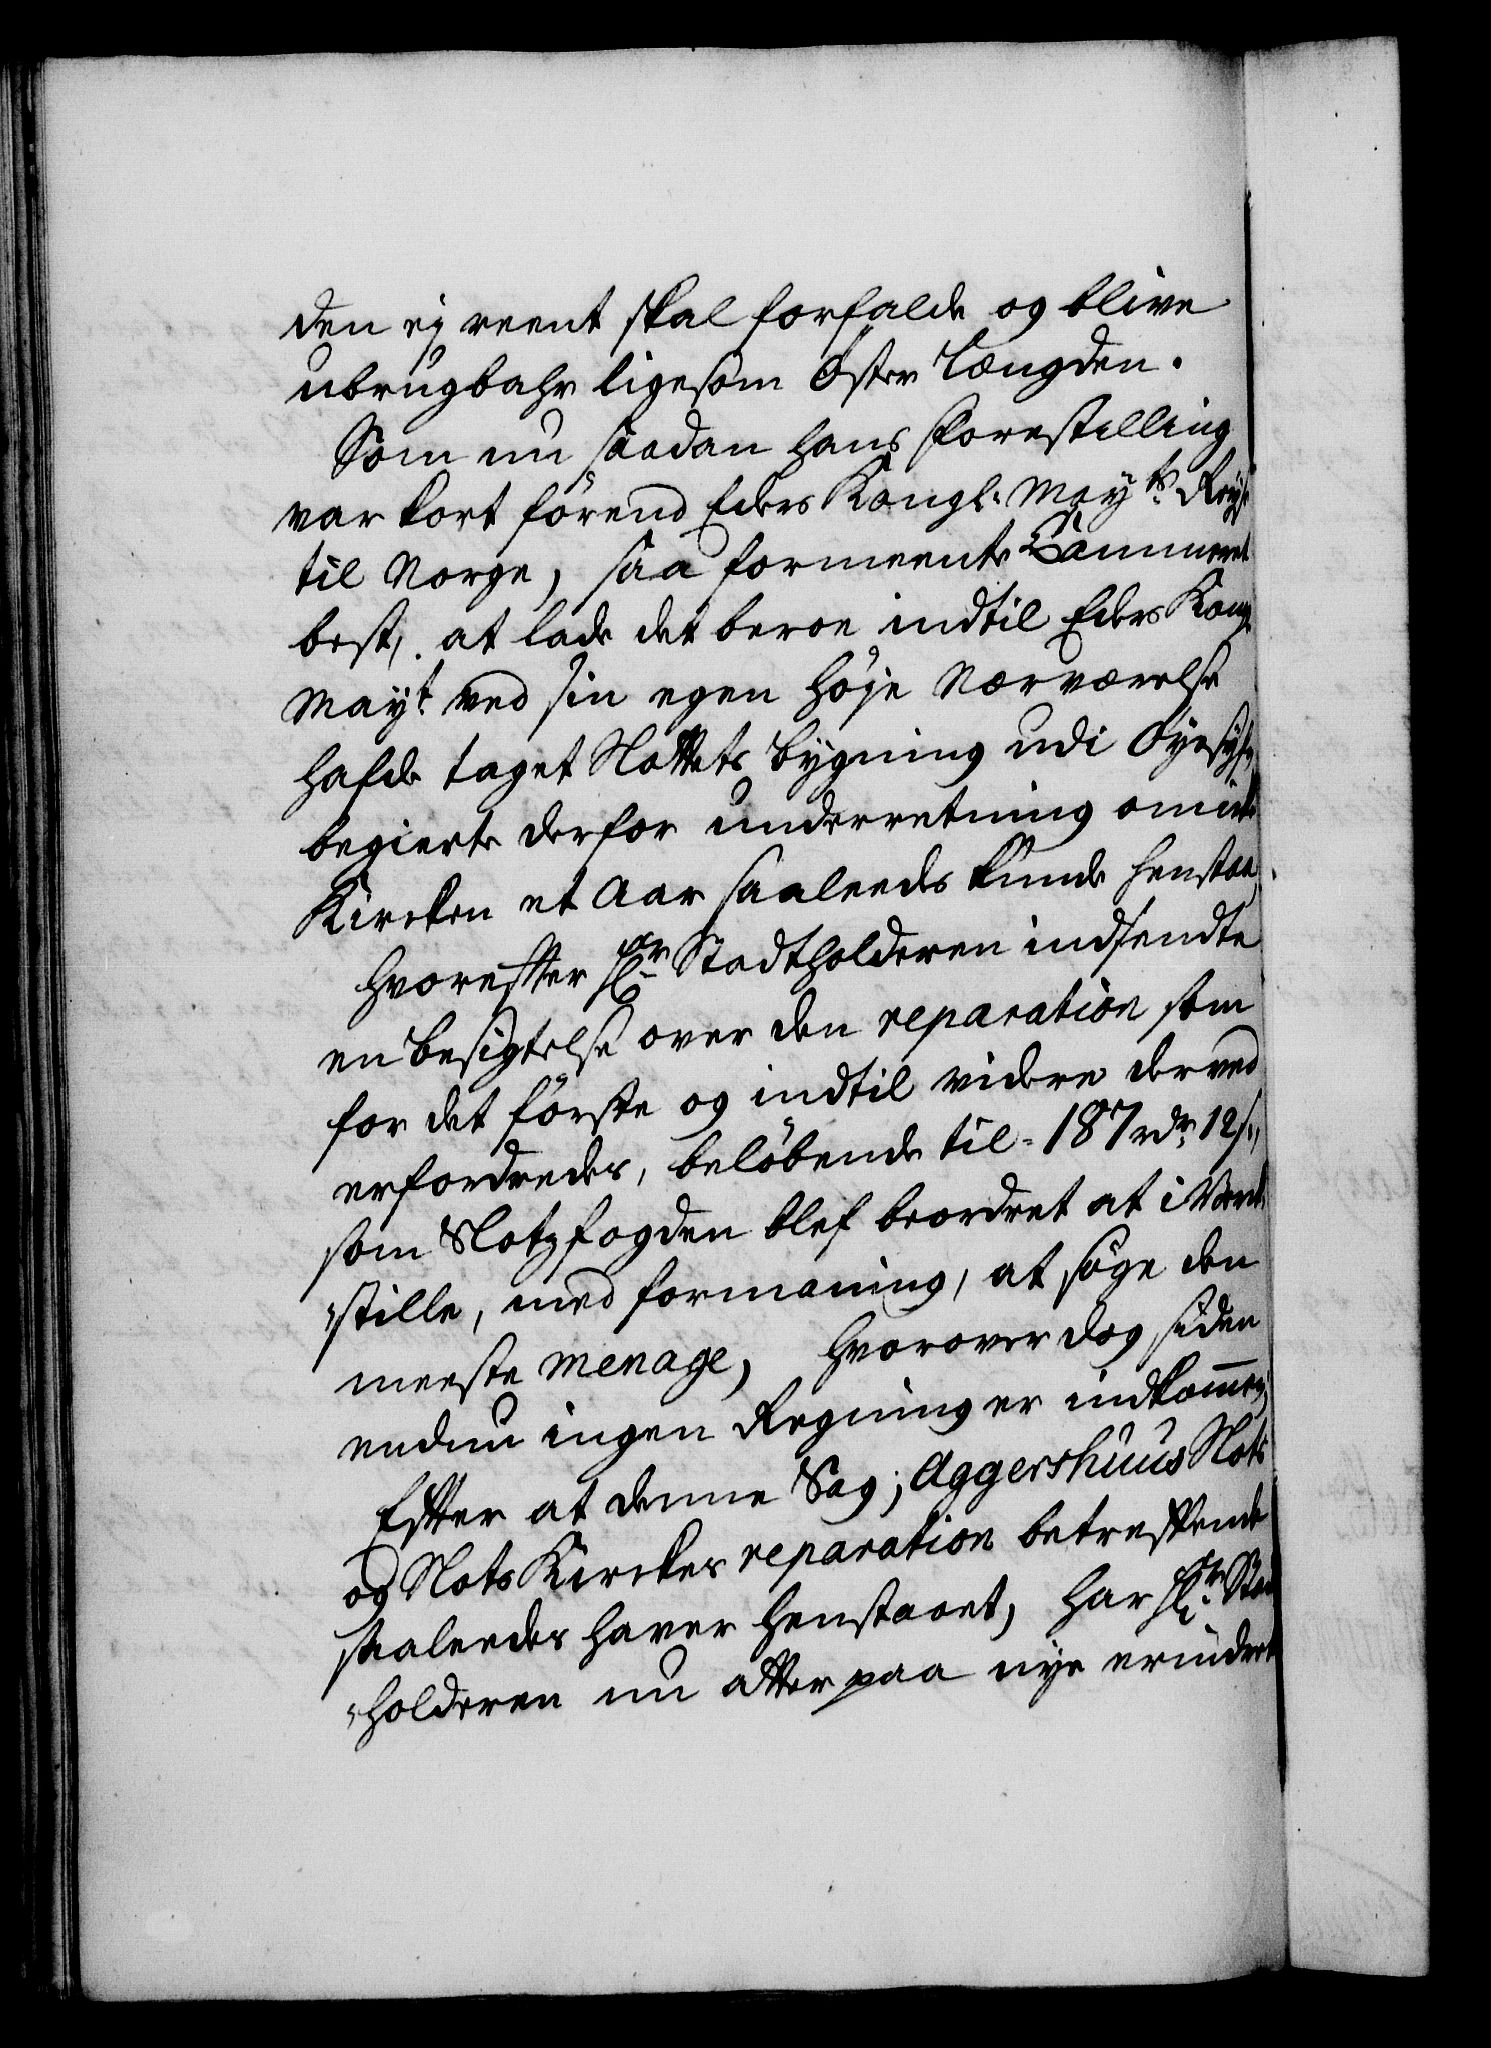 den ej reent skal forfalde og blive
ubrugbahr ligesom Öster Længden.
Som nu saadan hans Forestilling
var kort förend Eders Kongl: Mayts Reyse
til Norge, saa formeente Cammeret
best, at lade det beroe indtil Eders Kongl
Mayt ved sin egen höje Nærværelse
hafde taget Slottets bygning udi Öyesyn,
begierte derfor underretning om icke
Kircken et Aar saaleedes kunde henstaa,
Hvorefter Hr Stadtholderen indsendte
en besigtelse over den reparation som
for det förste og indtil videre derved
erfordredes, belöbende til 187 rdr 12 s.,
som Slotzfogden blef beordret at i Verk
stille, med formaning, at söge den
meeste menage, hvorover dog siden
endnu ingen Regning er indkommen,
Efter at denne Sag, Aggershuus Slots
og Slots Kirckes reparation betreffende
saaleedes haver henstaaet, har Hr. Stadt
holderen nu atter paa nye erindret